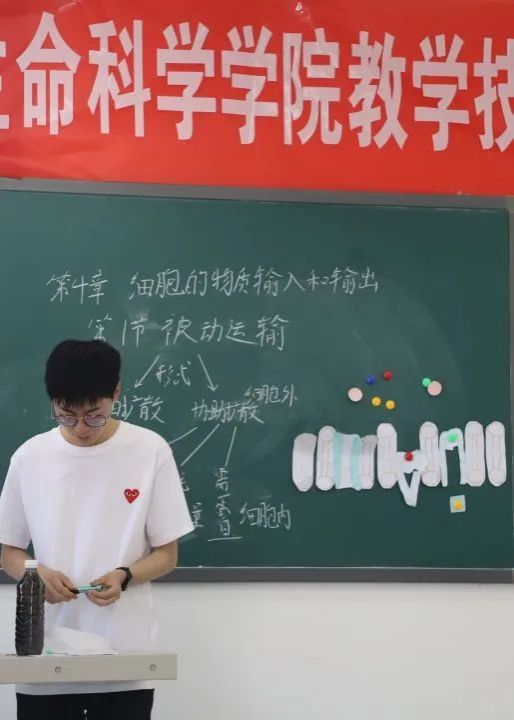 生命科学学院教学技
第4章 细胞的物质输入和输出
第1节 被动运输
形式
由扩散 协助扩散 细胞外
需
蛋
白 细胞内